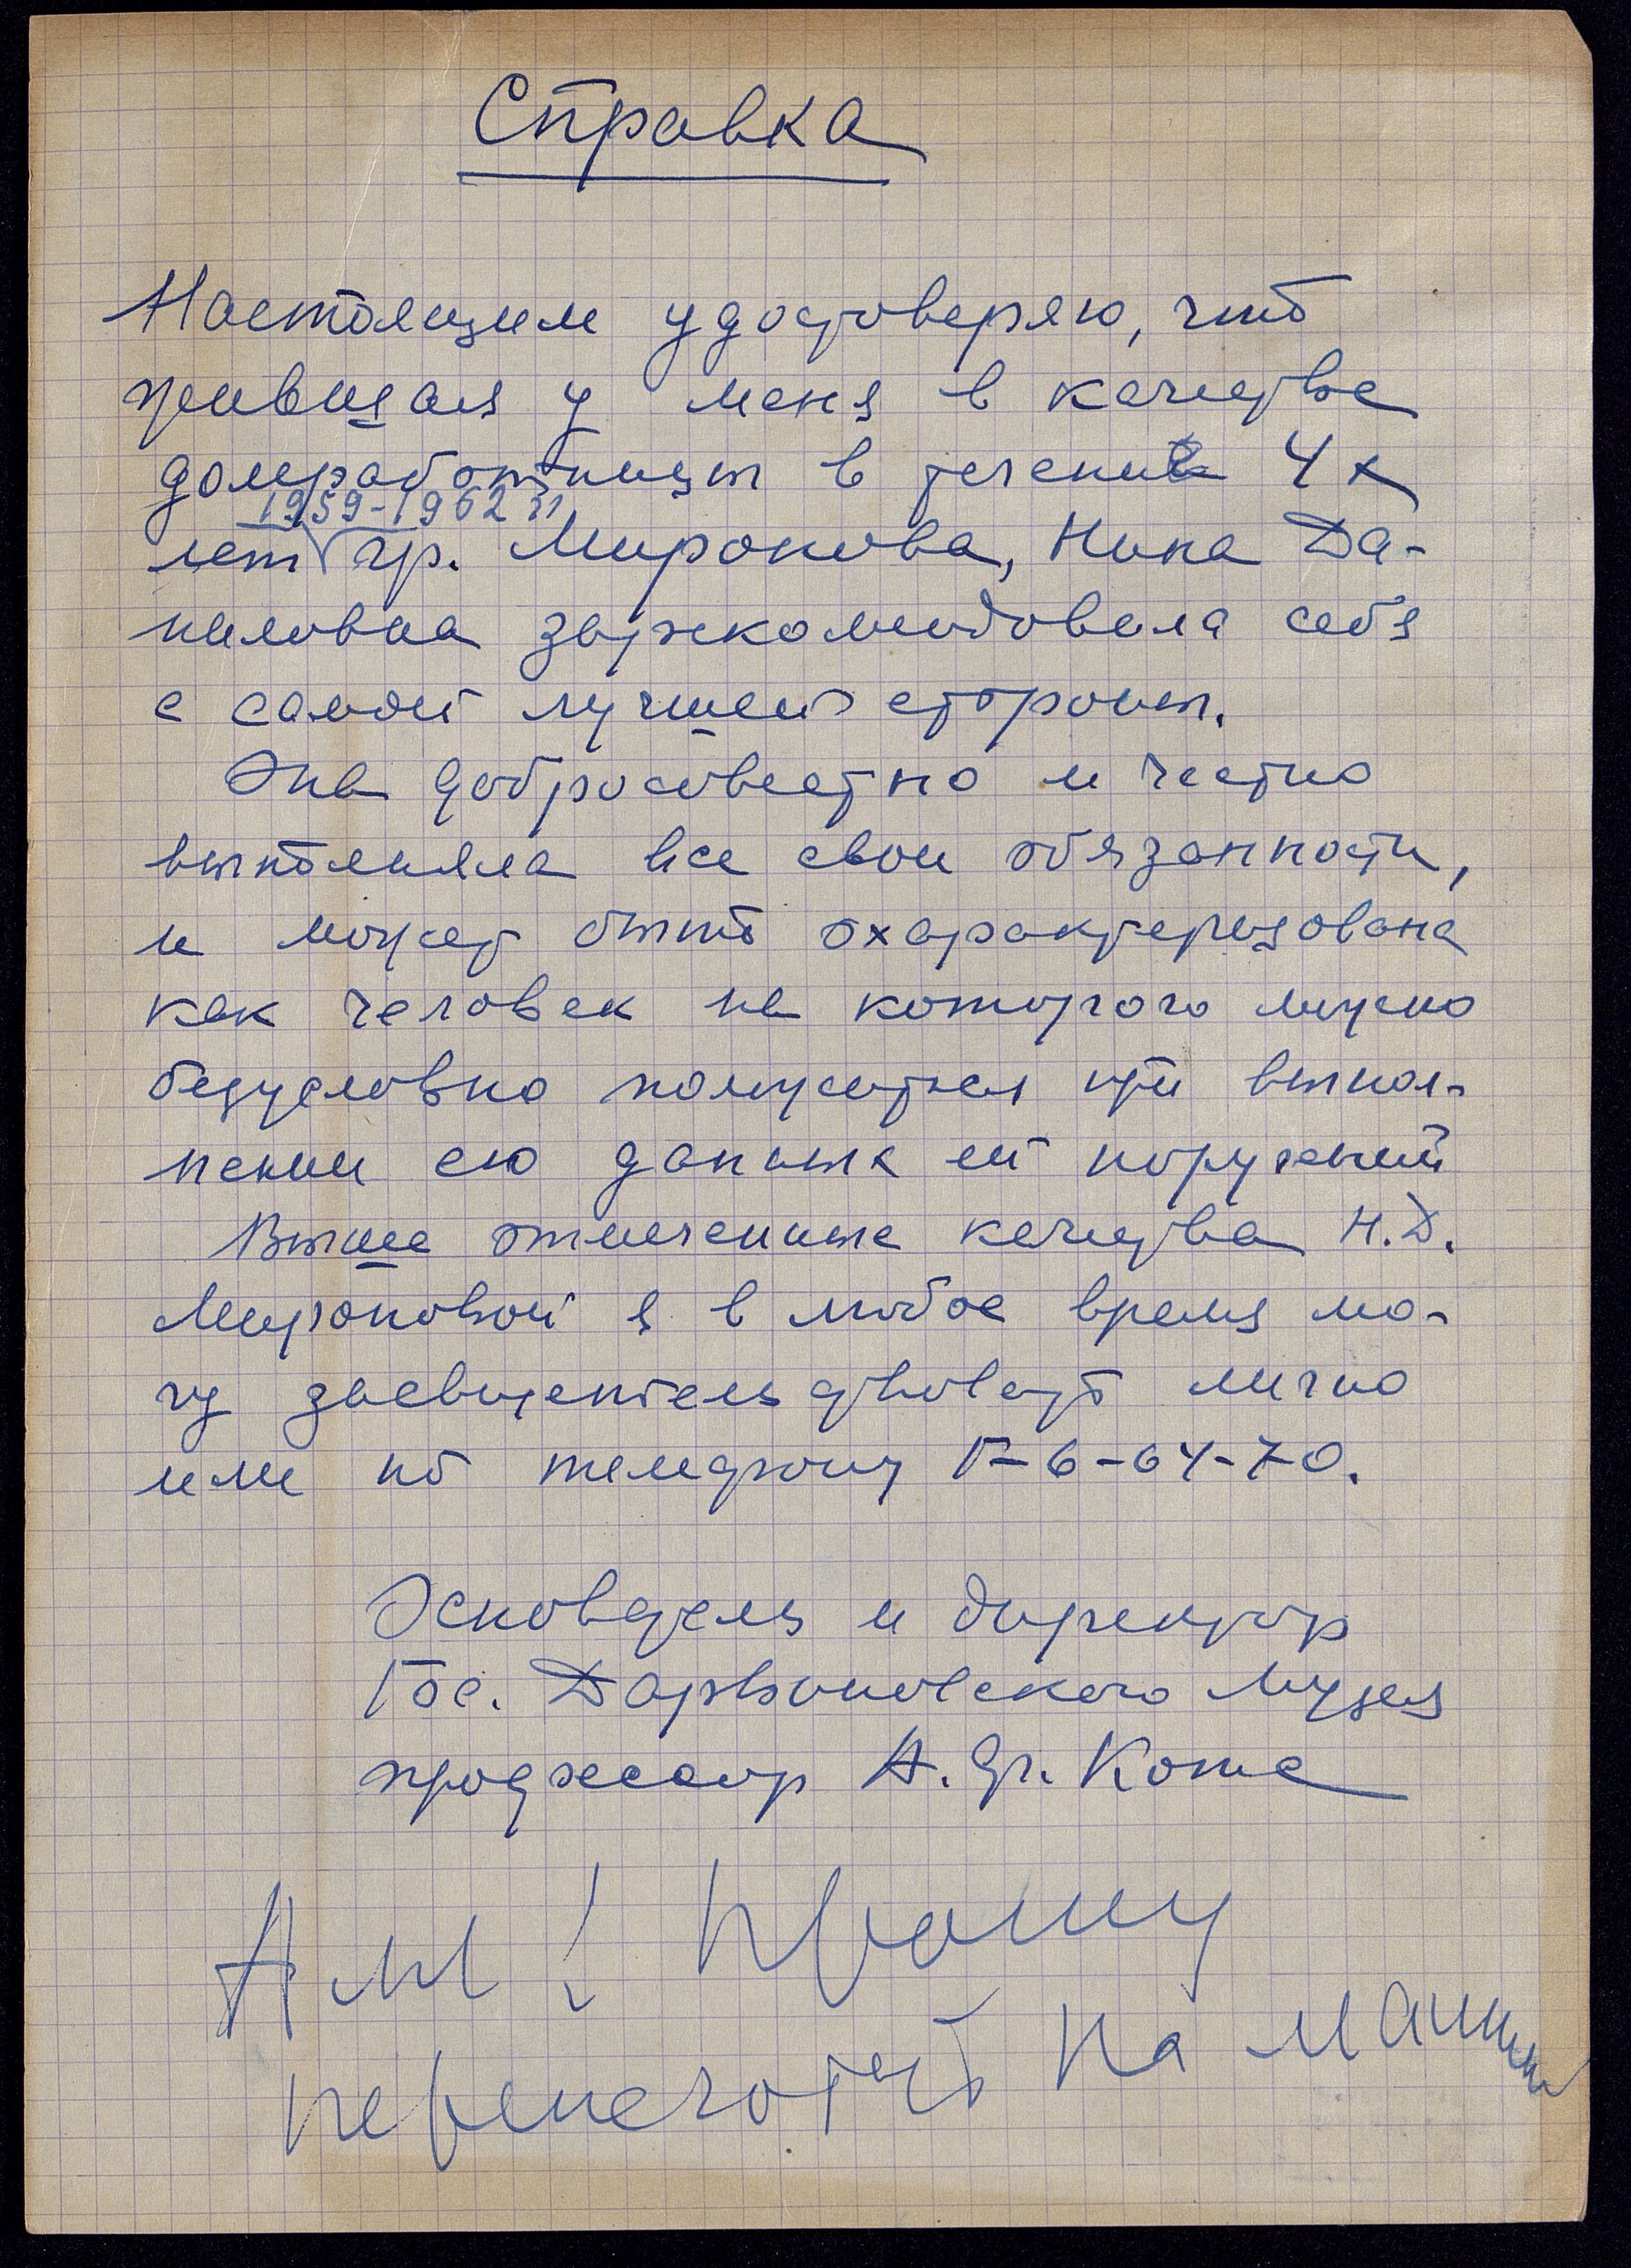 Справка
Настоящим удостоверяю, что
жившая у меня в качестве
домработницы в течении 4х
1959-1962 гг
лет гр. Миронова, Нина Да-
ниловна зарекомендовала себя
с самой лучшей стороны.
Она добросовестно и честно
выполняла все свои обязанности,
и может быть охарактеризована
как человек на которого можно
безусловно положиться при выпол-
нении ею данных ей поручений
Выше отмеченные качества Н.Д.
Мироновой я в любое время мо-
гу засвидетельствовать лично
или по телефону Г-6-64-70.
Основатель и директор
Гос. Дарвиновского Музея
профессор А. Ф. Котс
Прошу
перепечатать на машинке